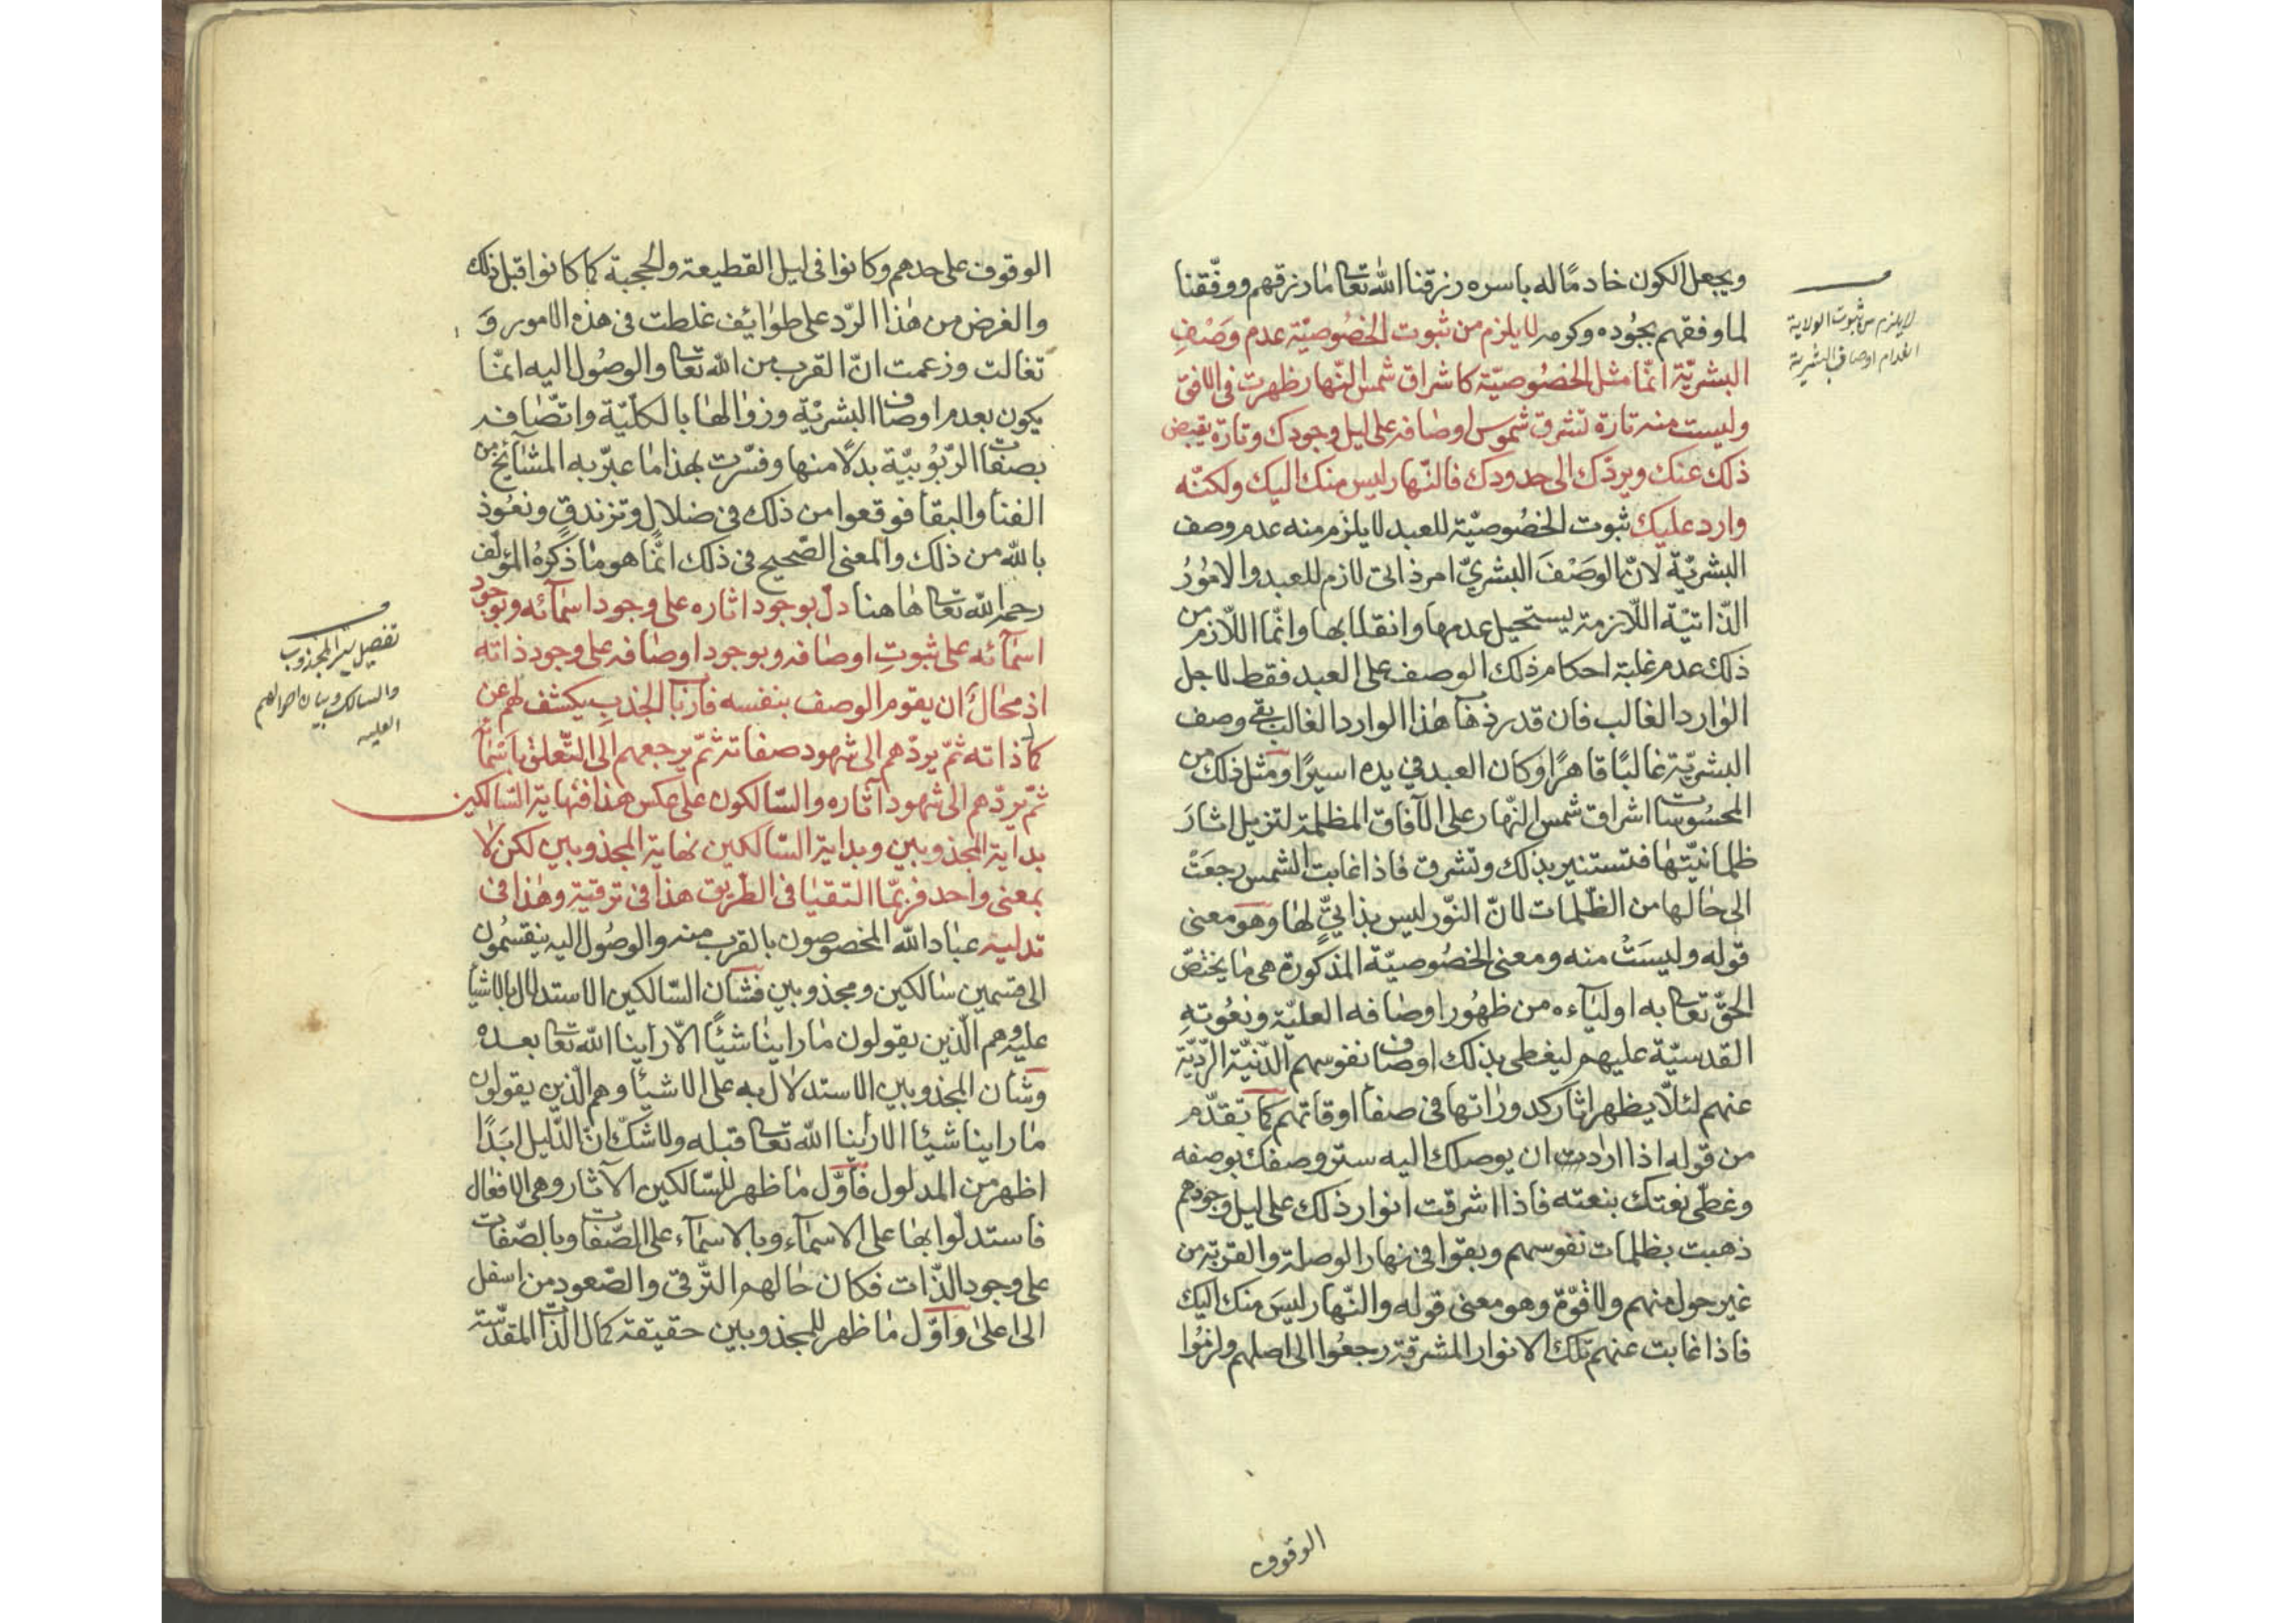 ويجعل الكون خادمًا له باسره رزقنا الله تعا ما رزقهم ووفّقنا
لما وفقهم بجُوده وكرمه لا يلزم من ثبوت الخصُوصيّة عدم وصْفِ
البشريّة انّما مثل الخصُوصيّة كاشراق شمس النّهار ظهرت فى الافق
وليست منه تارة تشرق شموس اوصافه على ليل وجودك وتارة يقبض
ذلك عنك ويردّك الى حدودك فالنّهار ليس منك اليك ولكنّه
وارد عليك ثبوت الخصُوصيّة للعبد لا يلزم منه عدم وصف
البشريّة لانّ الوصْفَ البشريّ امر ذاتى لازم للعبد والامُورُ
الذّاتيّة اللّازمة يستحيل عدمها وانقلابها وانّما اللّازم من
ذلك عدم غلبة احكام ذلك الوصف على العبد فقط لاجل
الوارد الغالب فان قدر ذهاب هذا الوارد الغالب بقى وصف
البشريّة غالبًا قاهرًا وكان العبد فى يده اسيرًا ومثل ذلك من
المحسُوسات اشراق شمس النّهار على الآفاق المظلمة لتزيل اثارَ
ظلمانيّتها فتستنير بذلك وتشرق فاذا غابت الشمس رجعَتْ
الى حالها من الظّلمات لانّ النّور ليس بذاتيٍّ لها وهو معنى
قوله وليسَتْ منه ومعنى الخصُوصيّة المذكورة هى ما يختصّ
الحقّ تعا به اوليآءه من ظهُور اوصافه العليّة ونعُوتهِ
القدسيّة عليهم ليغطى بذلك اوصاف نفوسهم الدّنيّة الرّديّة
عنهم لئلّا يظهر اثار كدوراتها فى صفا اوقاتهم كما تقدّم
من قوله اذا اردت ان يوصلك اليه ستر وصفك بوصفه
وغطّى نعتك بنعته فاذا اشرقت انوار ذلك على ليل وجودهم
ذهبت بظلمات نفوسهم وبقوا فى نهار الوصلة والقربة من
غير حول منهم ولا قوّة وهو معنى قوله والنّهار ليسَ منك اليك
فاذا غابت عنهم تلك الانوار المشرقة رجعُوا الى اصلهم ولزمُوا
الوقوف
لا يلزم من ثبوت الولاية
انعدام اوصاف البشرية
الوقوف على حدهم وكانوا فى ليل القطيعة والحجبة كما كانوا قبل ذلك
والغرض من هذا الرّد على طوائف غلطت فى هذه الامور وَ
تغالت وزعمت انّ القرب من الله تعا والوصُول اليه انمّا
يكون بعدم اوصاف البشريّة وزوالها بالكليّة واتّصافه
بصفات الرّبُوبيّة بدلًا منها وفسّرت بهذا ما عبّر به المشآئخ من
الفنا والبقا فوقعوا من ذلك فى ضلال وتزندقٍ ونعُوذ
بالله من ذلك والمعنى الصّحيح فى ذلك انّما هو ما ذكرهُ المؤلّف
رحمه الله تعا هاهنا دلّ بوجود اثاره على وجود اسمآئه وبوجود
اسمآئه على ثبوتِ اوصافه وبوجود اوصافه على وجود ذاته
اذ محالٌ ان يقوم الوصف بنفسه فارباب الجذبِ يكشف لهم عن
كمال ذاته ثمّ يردّهم الى شهود صفاته ثمّ يرجعهم الى التّعلّق باسمآئه
ثمّ يردّهم الى شهود آثاره والسّالكون على عكس هذا فنهاية السّالكين
بداية المجذوبين وبداية السّالكين نهاية المجذوبين لكن لا
بمعنى واحد فربّما التقيا فى الطّريق هذا فى ترقية وهذا فى
تدليه عباد الله المخصوصون بالقرب منه والوصُول اليه ينقسمُون
الى قسمين سالكين ومجذوبين فشأن السّالكين الاستدلال بالاشيآ
عليه وهم الّذين يقولون ما راينا شيئًا الّا راينا الله تعا بعده
وشأن المجذوبين الاستدلال به على الاشيآ وهم الّذين يقولون
ما راينا شيئا الا راينا الله تعا قبله ولا شكّ انّ الدّليل ابَدًا
اظهر من المدلول فاوّل ما ظهر للسّالكين الآثار وهى الافعال
فاستدلّوا بها على الاسمآء وبالاسمآء على الصّفات وبالصّفات
على وجود الذّات فكان حالهم التّرقى والصّعود من اسفل
الى اعلى واوّل ما ظهر للمجذوبين حقيقة كمال الذّات المقدّسة
تفصيل سير المجذوب
والسالك وبيان احوالهم
العليه